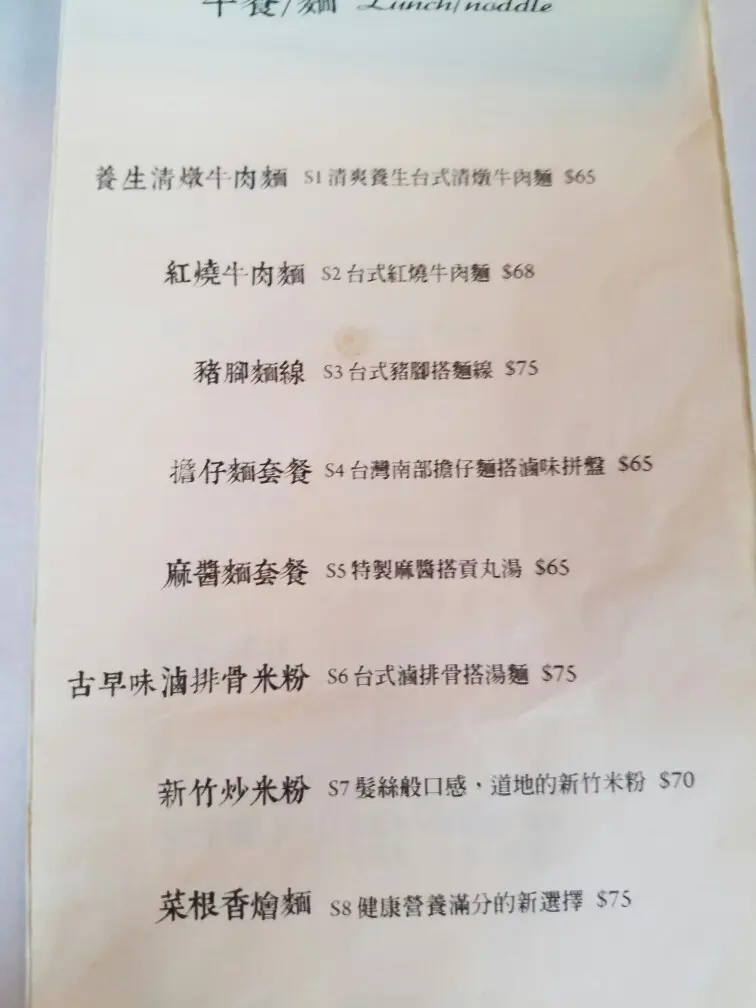 午餐/麵 Lunch/noddle
養生清燉牛肉麵 S1 清爽養生台式清燉牛肉麵 $65
紅燒牛肉麵 S2 台式紅燒牛肉麵 $68
豬腳麵線 S3 台式豬腳搭麵線 $75
擔仔麵套餐 S4 台灣南部擔仔麵搭滷味拼盤 $65
麻醬麵套餐 S5 特製麻醬搭貢丸湯 $65
古早味滷排骨米粉 S6 台式滷排骨搭湯麵 $75
新竹炒米粉 S7 髮絲般口感，道地的新竹米粉 $70
菜根香燴麵 S8 健康營養滿分的新選擇 $75